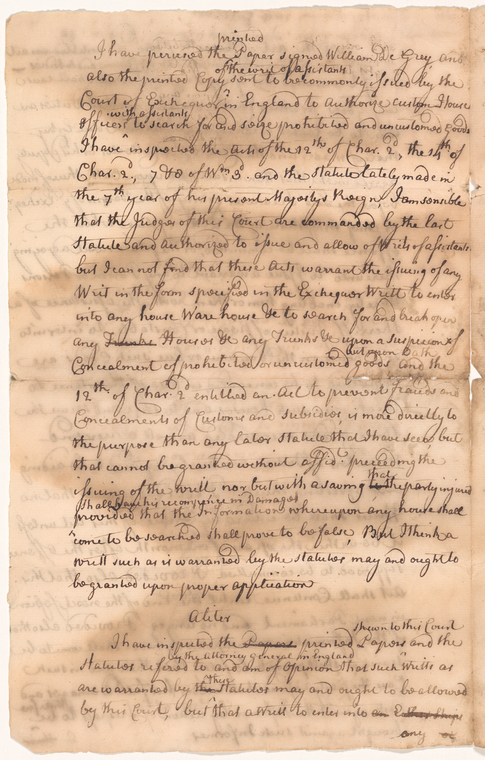 printed
I have perused the Paper signed William De Grey and
of the writ of assistants
also the printed Copy sent to be commonly issued by the
Court of Exchequer in England to Authorize Custom House
with assistants
Officers to search for and seize prohibited and uncustomed Goods
I have inspected the acts of the 12th of Char. 2d, the 14th of
Char. 2d, 7 & 8 of Wm 3d. and the statute lately made in
the 7th year of his present Majestys Reign, I am sensible
that the Judges of this Court are commanded by the last
Statute and authorized to issue and allow of Writs of assistants
but I cannot find that these Acts warrant the issuing of any
Writ in the form specified in the Exchequer Writt to enter
into any house Ware house &c to search for and break open
any Trunks Houses &c any Trunks &c upon a suspicion of
but upon Oath
Concealment of prohibited or uncustomed goods and the
12th of Char. 2d entitled an Act to prevent frauds and
Concealments of Customs and subsidies is more directly to
the purpose than any later statute that I have seen but
that cannot be granted without affidt. preceeding the
issuing of the writt nor but with a saving that the party injured
shall have his recompence in Damages
provided that the Information whereupon any house shall
come to be searched shall prove to be false, But I think a
writt such as is warranted by the statutes may and ought to
be granted upon proper application
Aliter
shewn to this Court
I have inspected the Papers printed Papers and the
by the attorney General in England
statutes referred to and am of Opinion that such Writts as
these
are warranted by the Statutes may and ought to be allowed
by this Court, but that a Writt to enter into an Ships
any